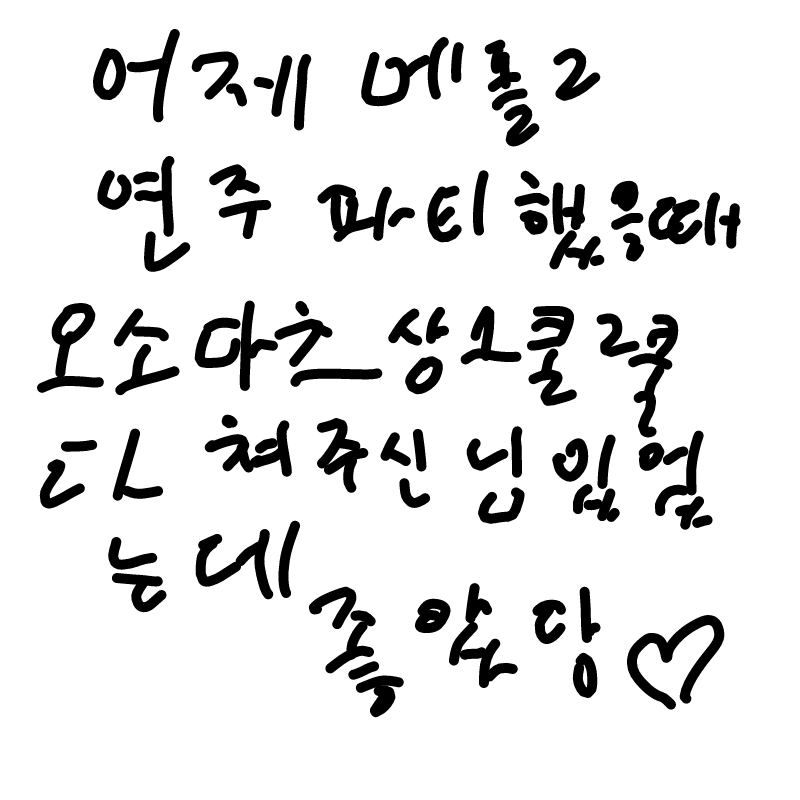 어제 메홀2
연주 파티 했을때
오소마츠상 1쿨 2쿨
다 쳐주신 닙 있엇
는데
좋앗당♡